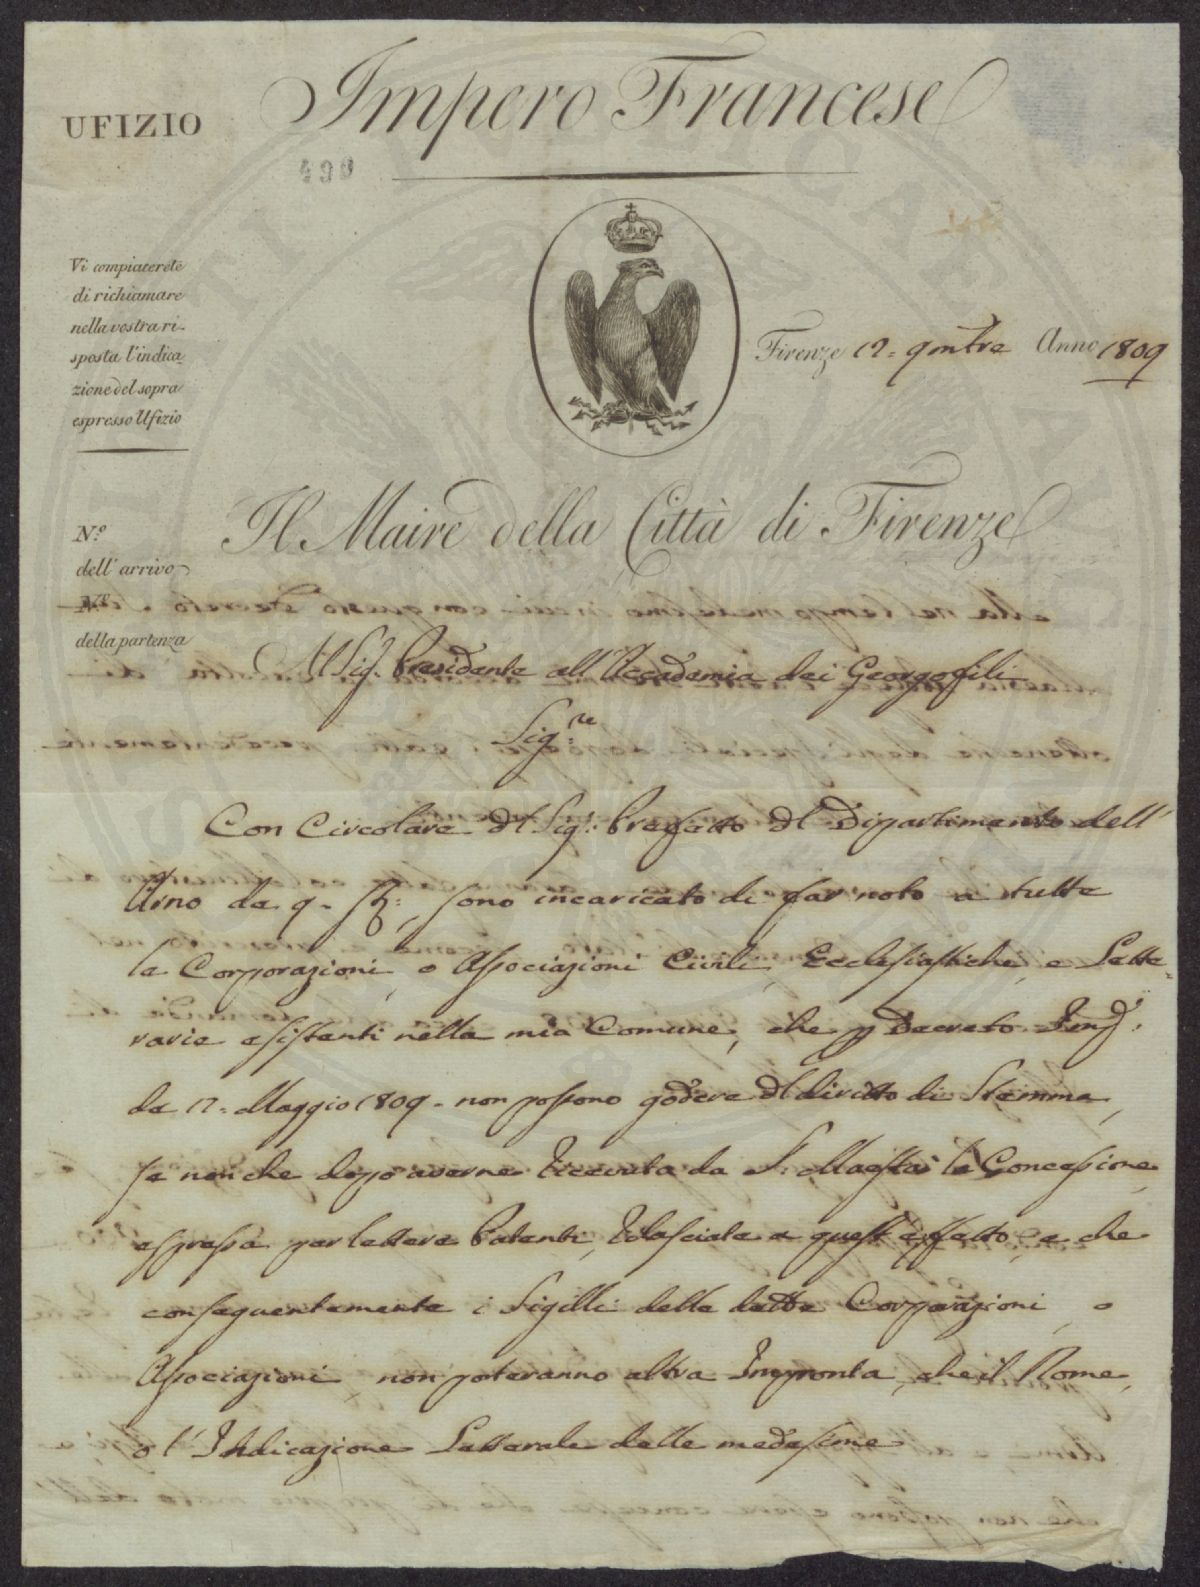 Impero Francese
UFIZIO
499
Vi compiacerete
di richiamare
nella vostra ri-
sposta l'indica
zione del sopra
espresso Ufizio
Firenze 12 = 9mbre Anno 1809
Il Maire della Città di Firenze
N.º
dell'arrivo
N.º
della partenza
Al Sig.r Presidente all'Accademia dei Georgofili
Sig.re
Con Circolare dl Sig.r Prefetto dl Dipartimento dell'
Arno de 9 = , sono incaricato di far noto a tutte
le Corporazioni, o Associazioni Civili, Ecclesiastiche, e Lette=
rarie esistenti nella mia Comune, che p Decreto Imp.
de 17 = Maggio 1809 = non possono godere dl diritto di Stemma,
se non che dopo averne ricevuta da S. Maestà la Concessione
espressa per lettere Patenti, rilasciate a quest'effetto, e che
conseguentemente i Sigilli delle dette Corporazioni, o
Associazioni non porteranno altra Impronta, che il Nome,
o l'Indicazione Letterale delle medesime